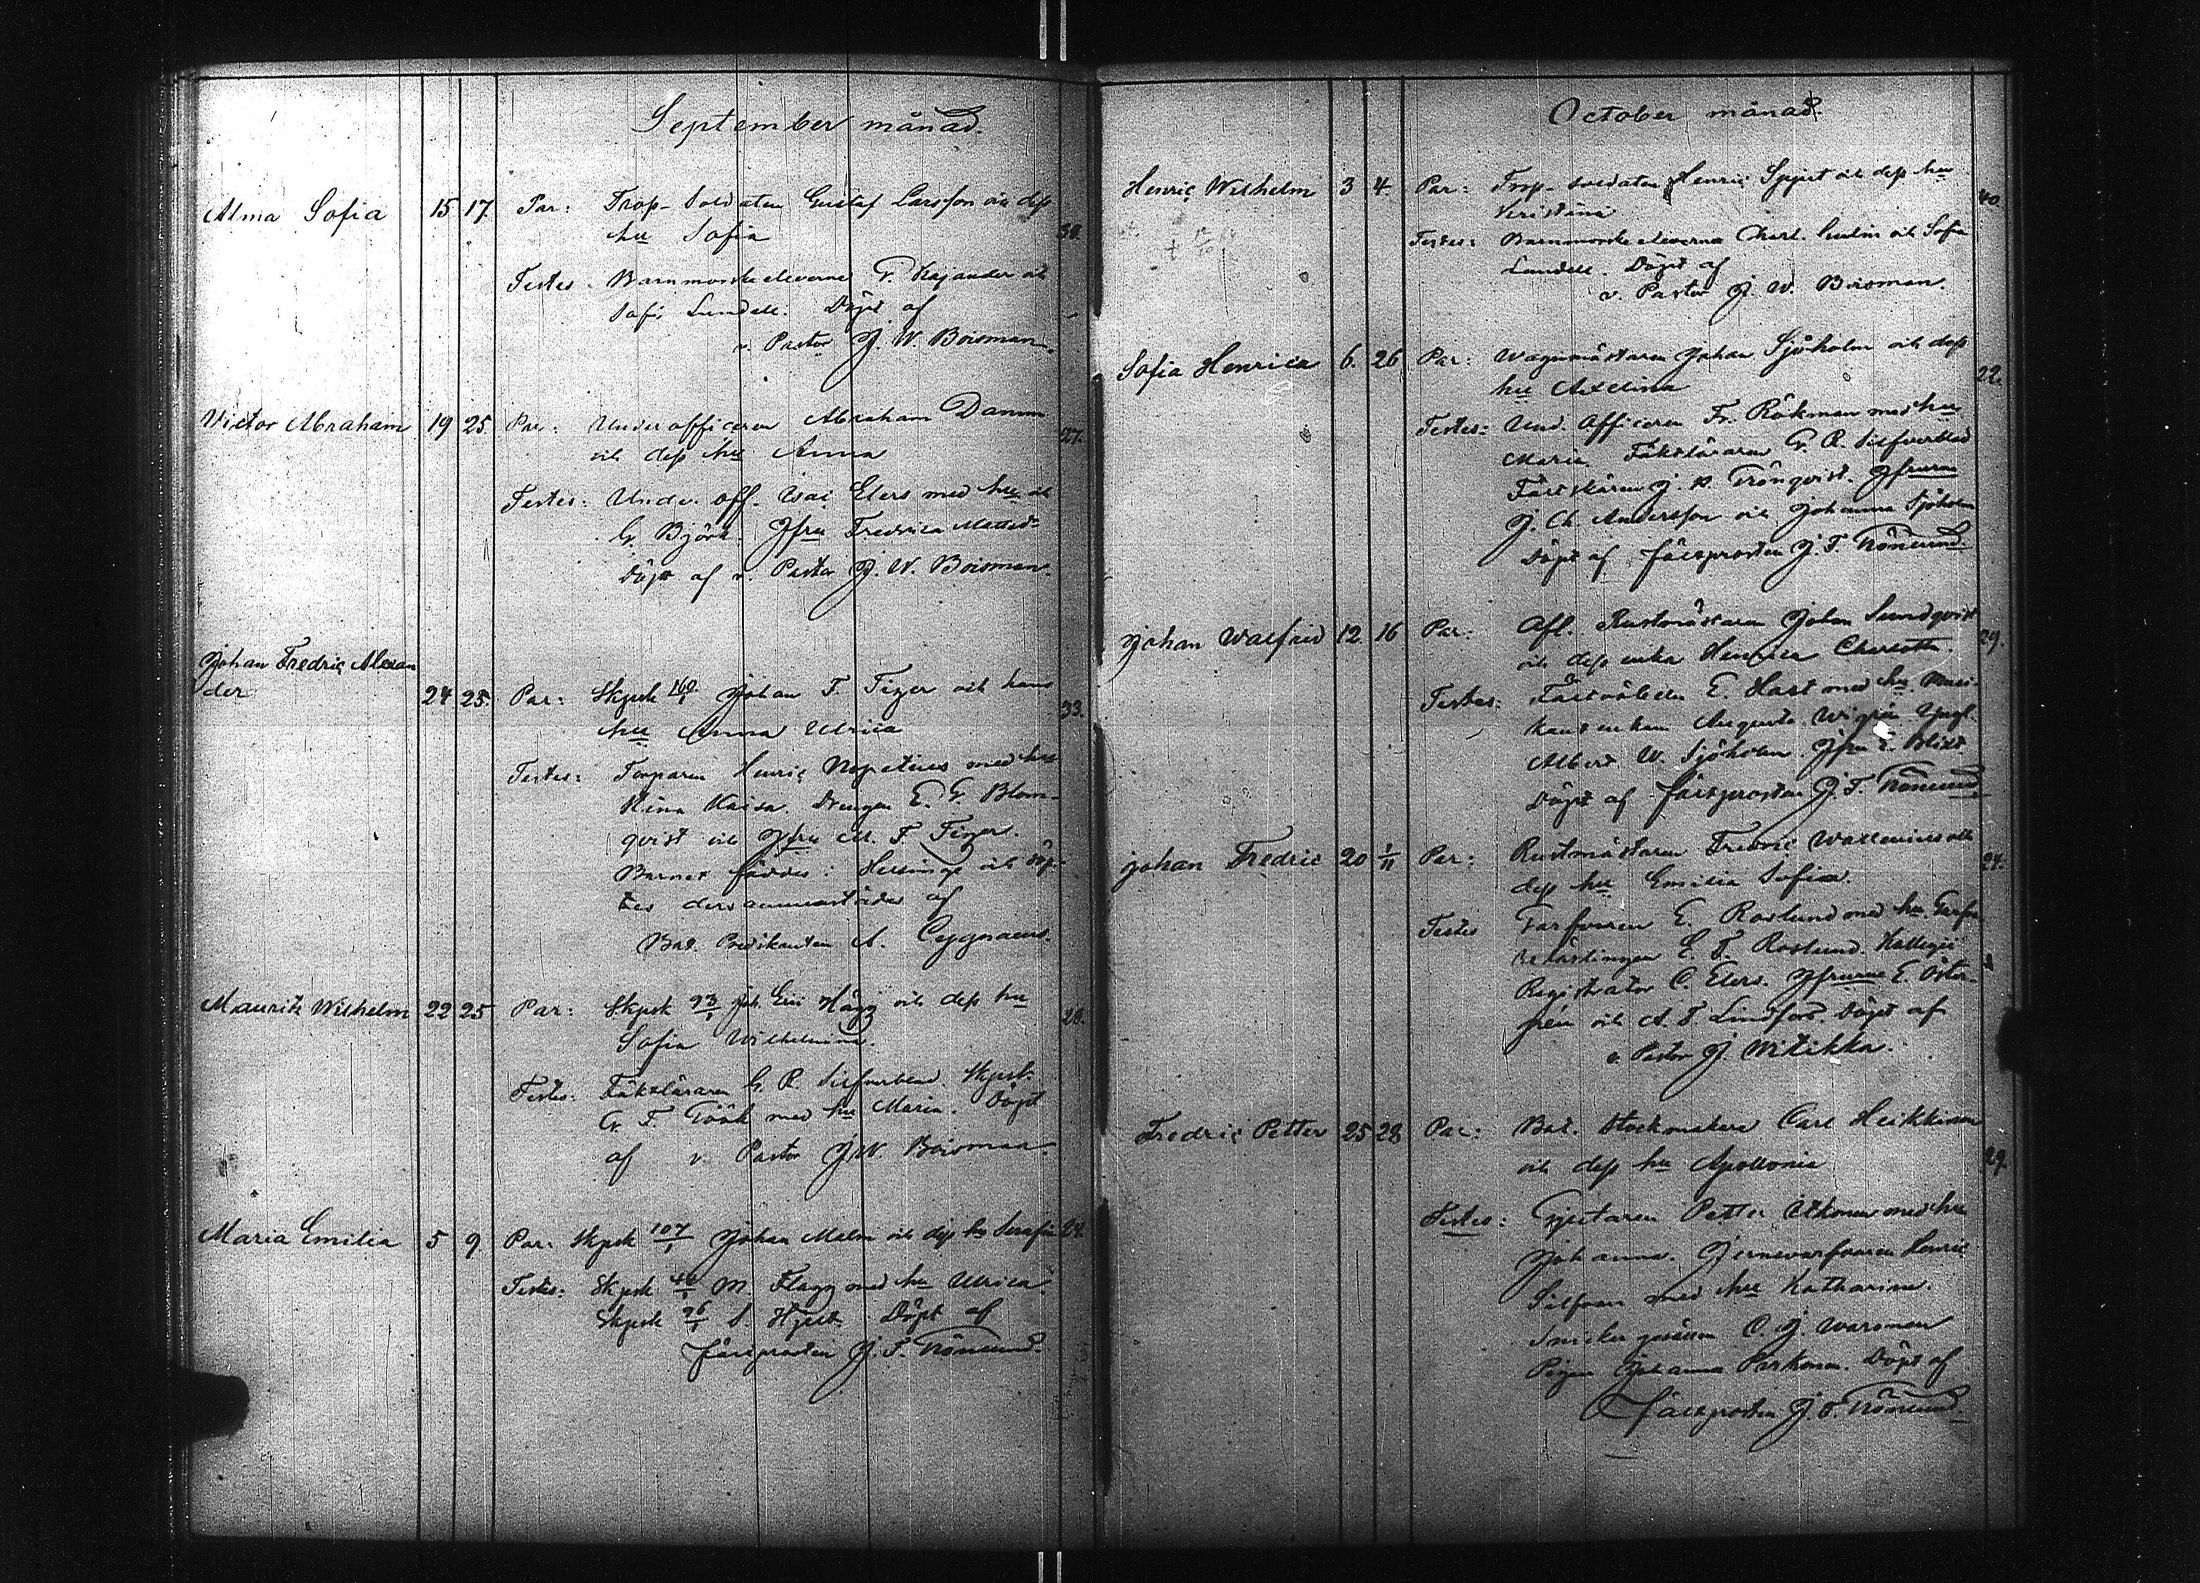 September månad.
Alma Sofia 15 17. Par: Trop-Soldaten Gustaf Larsson och dess
hu Sofia 30.
Testes. Barnmorske eleverne F. Kajander och
Sofi Lundell. Döpt af
v. Pastor J. W. Boisman.
Victor Abraham 19 25. Par: Underofficeren Abraham Damm
och dess hu Anna 27.
Testes: Under off. Isac Elers med hu och
G. Björk. Jfru Fredrica
Döpt af v. Pastor J. W. Boisman.
Johan Fredric Alexan
der 24 25. Par: Skpsk 160/1 Johan F. Tizer och hans
hu Anna Ulrica 33.
Testes: Torparen Henric Nopetius med hu
Stina Kaisa. Drengen E. G. Blom-
qvist och Jfru M. F. Tizer.
Barnet föddes i Helsinge och döp-
tes dersammastädes af
Bat. Predikanten A. Cygnaeus.
Mauritz Wilhelm 22 25 Par: Skpsk 93/1 Joh. Eric Hägg och dess hu
Sofia Wilhelmina. 28.
Testes. Fäktläraren G. R. Silfverblad. Skpsk.
G. F. Töök med hu Maria. Döpt
af v. Pastor J. W. Boisman.
Maria Emilia 5 9 Par: Skpsk 107/1 Johan Malm och dess hu Serafia 24.
Testes: Skpsk M. Flagg med hu Ulrica.
Skpsk 26/1 S. Hjelt. Döpt af
fältprosten J. T. Römund.
October månad.
Henric Wilhelm 3 4. Par: Trop-soldaten Henric Sppert och dess hu
Kristina 40.
Testes: Barnmorske eleverna Charl. och Sofia
Lundell. Döpt af
v. Pastor J. W. Boisman.
Sofia Henrica 6. 26. Par: Wagnmästaren Johan Sjöholm och dess
hu Axelina 22.
Testes: Und. Officeren Fr. Rökman med hu
Maria. Fäktläraren G. R. Silfverblad
Fältskären J. A. Trönqvist. Jfruru
J. Ch. Andersson och Johanna Sjöholm
Döpt af fältprosten J. T. Römund.
Johan Walfrid 12. 16 Par: Afl. Rustmästaren Johan Sundqvist
och dess enka Henrica Charlotta. 29.
Testes: Fältväbeln E. Hast med hu. Musi-
kant enkan Augusta Yngl.
Albert W. Sjöholm. Jfru E. Blixt
Döpt af fältprosten J. T. Römund.
Johan Fredric 20 1/11 Par: Rustmästaren Fredric Wallenius och
dess hu Emilia Sofia. 24.
Testes Farfarren E. Roslund med hu
E. F. Roslund. Kollegii
Registrator C. Elers. Jfruru E. Öster-
gren och A. F. Lindfors. Döpt af
v. Pastor J. Witikka.
Fredric Petter 25 28 Par: Bat. Stockmakare Carl Heikkinen
och dess hu Apollonia 29.
Testes: Gjutaren Petter med hu
Johanna. Henric
Silfvan med hu Katharina.
Snickargesällen C. J. Warsman
Pigan Johanna Parkonen. Döpt af
Fältprosten J. T. Römund.